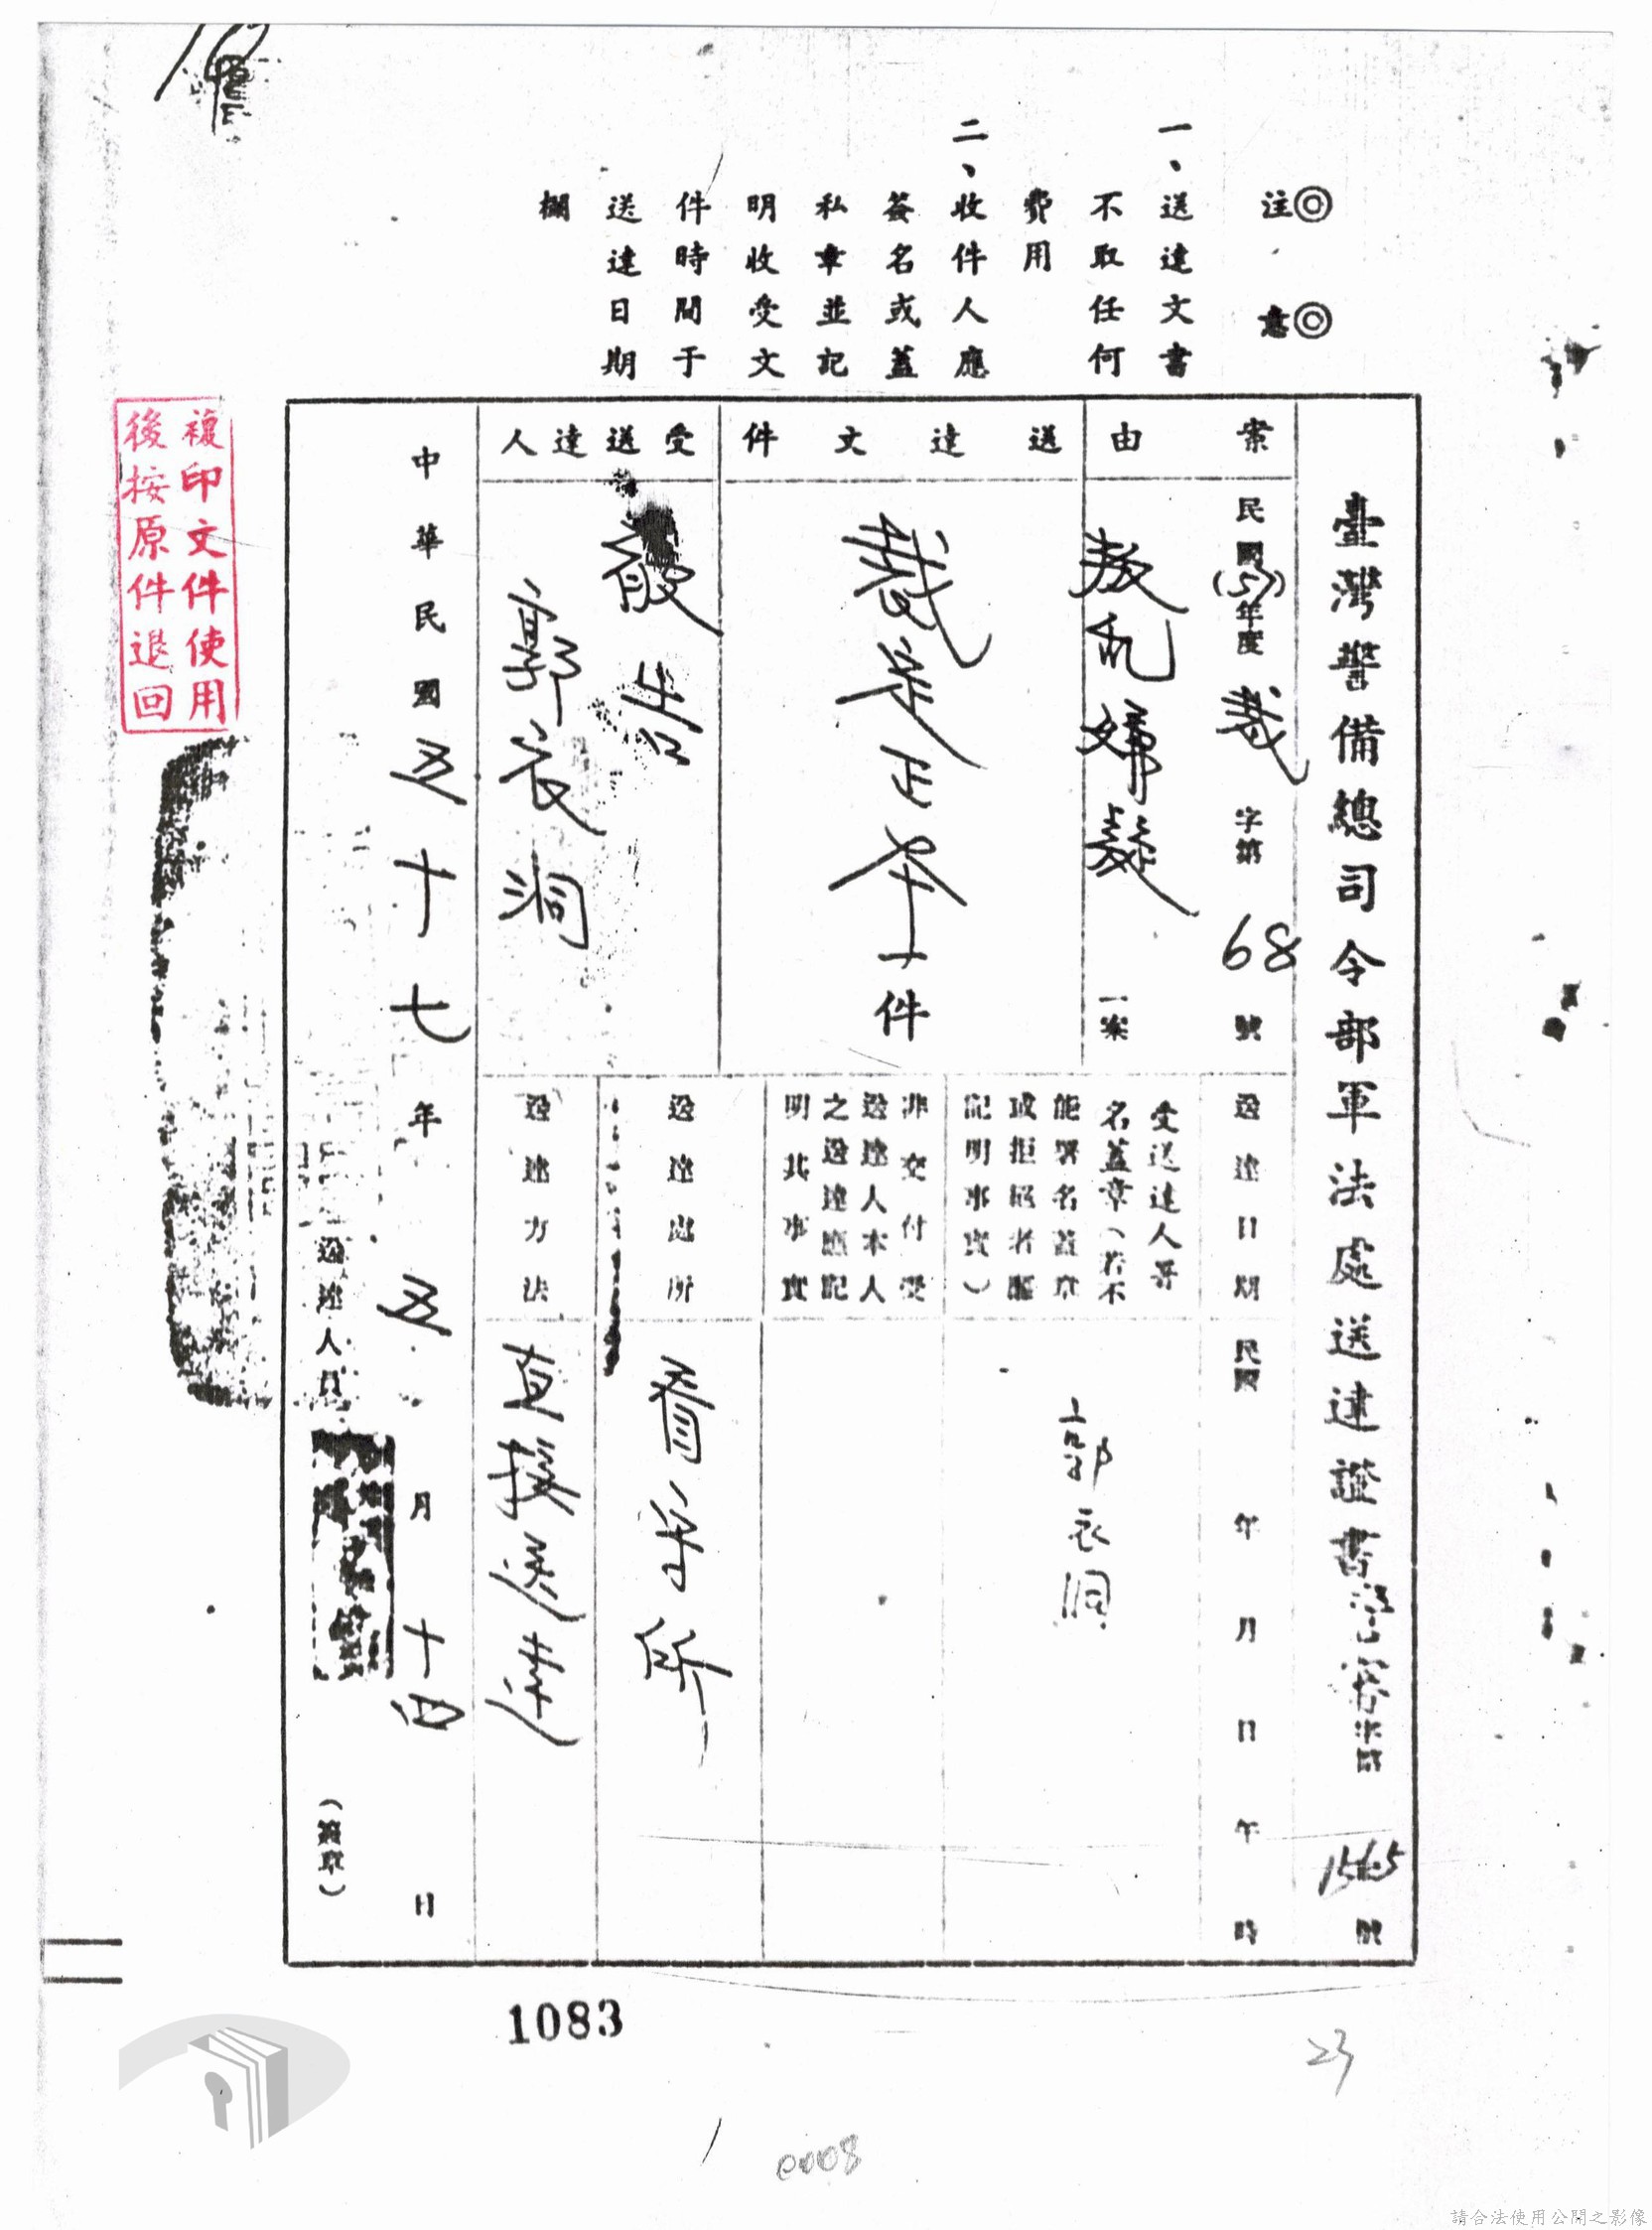 ◎注意◎
一、送達文書
不取任何
費用
二、收件人應
簽名或蓋
私章並記
明收受文
件時間于
送達日期
欄
臺灣警備總司令部軍法處送達證書
1565
號
案由
民國(57)年度裁字第68號
叛乱嫌疑一案
送達文件
裁定正本一件
受送達人
被告
郭衣洞
送達日期
民國 年 月 日 午 時
受送達人署
名蓋章(若不
能署名蓋章
或拒絕者應
記明事實)
郭衣洞
非交付受
送達人本人
之送達應記
明其事實
送達處所
看守所
送達方法
直接送達
中華民國五十七年五月十四日
送達人員
(簽章)
複印文件使用
後按原件退回
1083
23
0008
請合法使用公開之影像